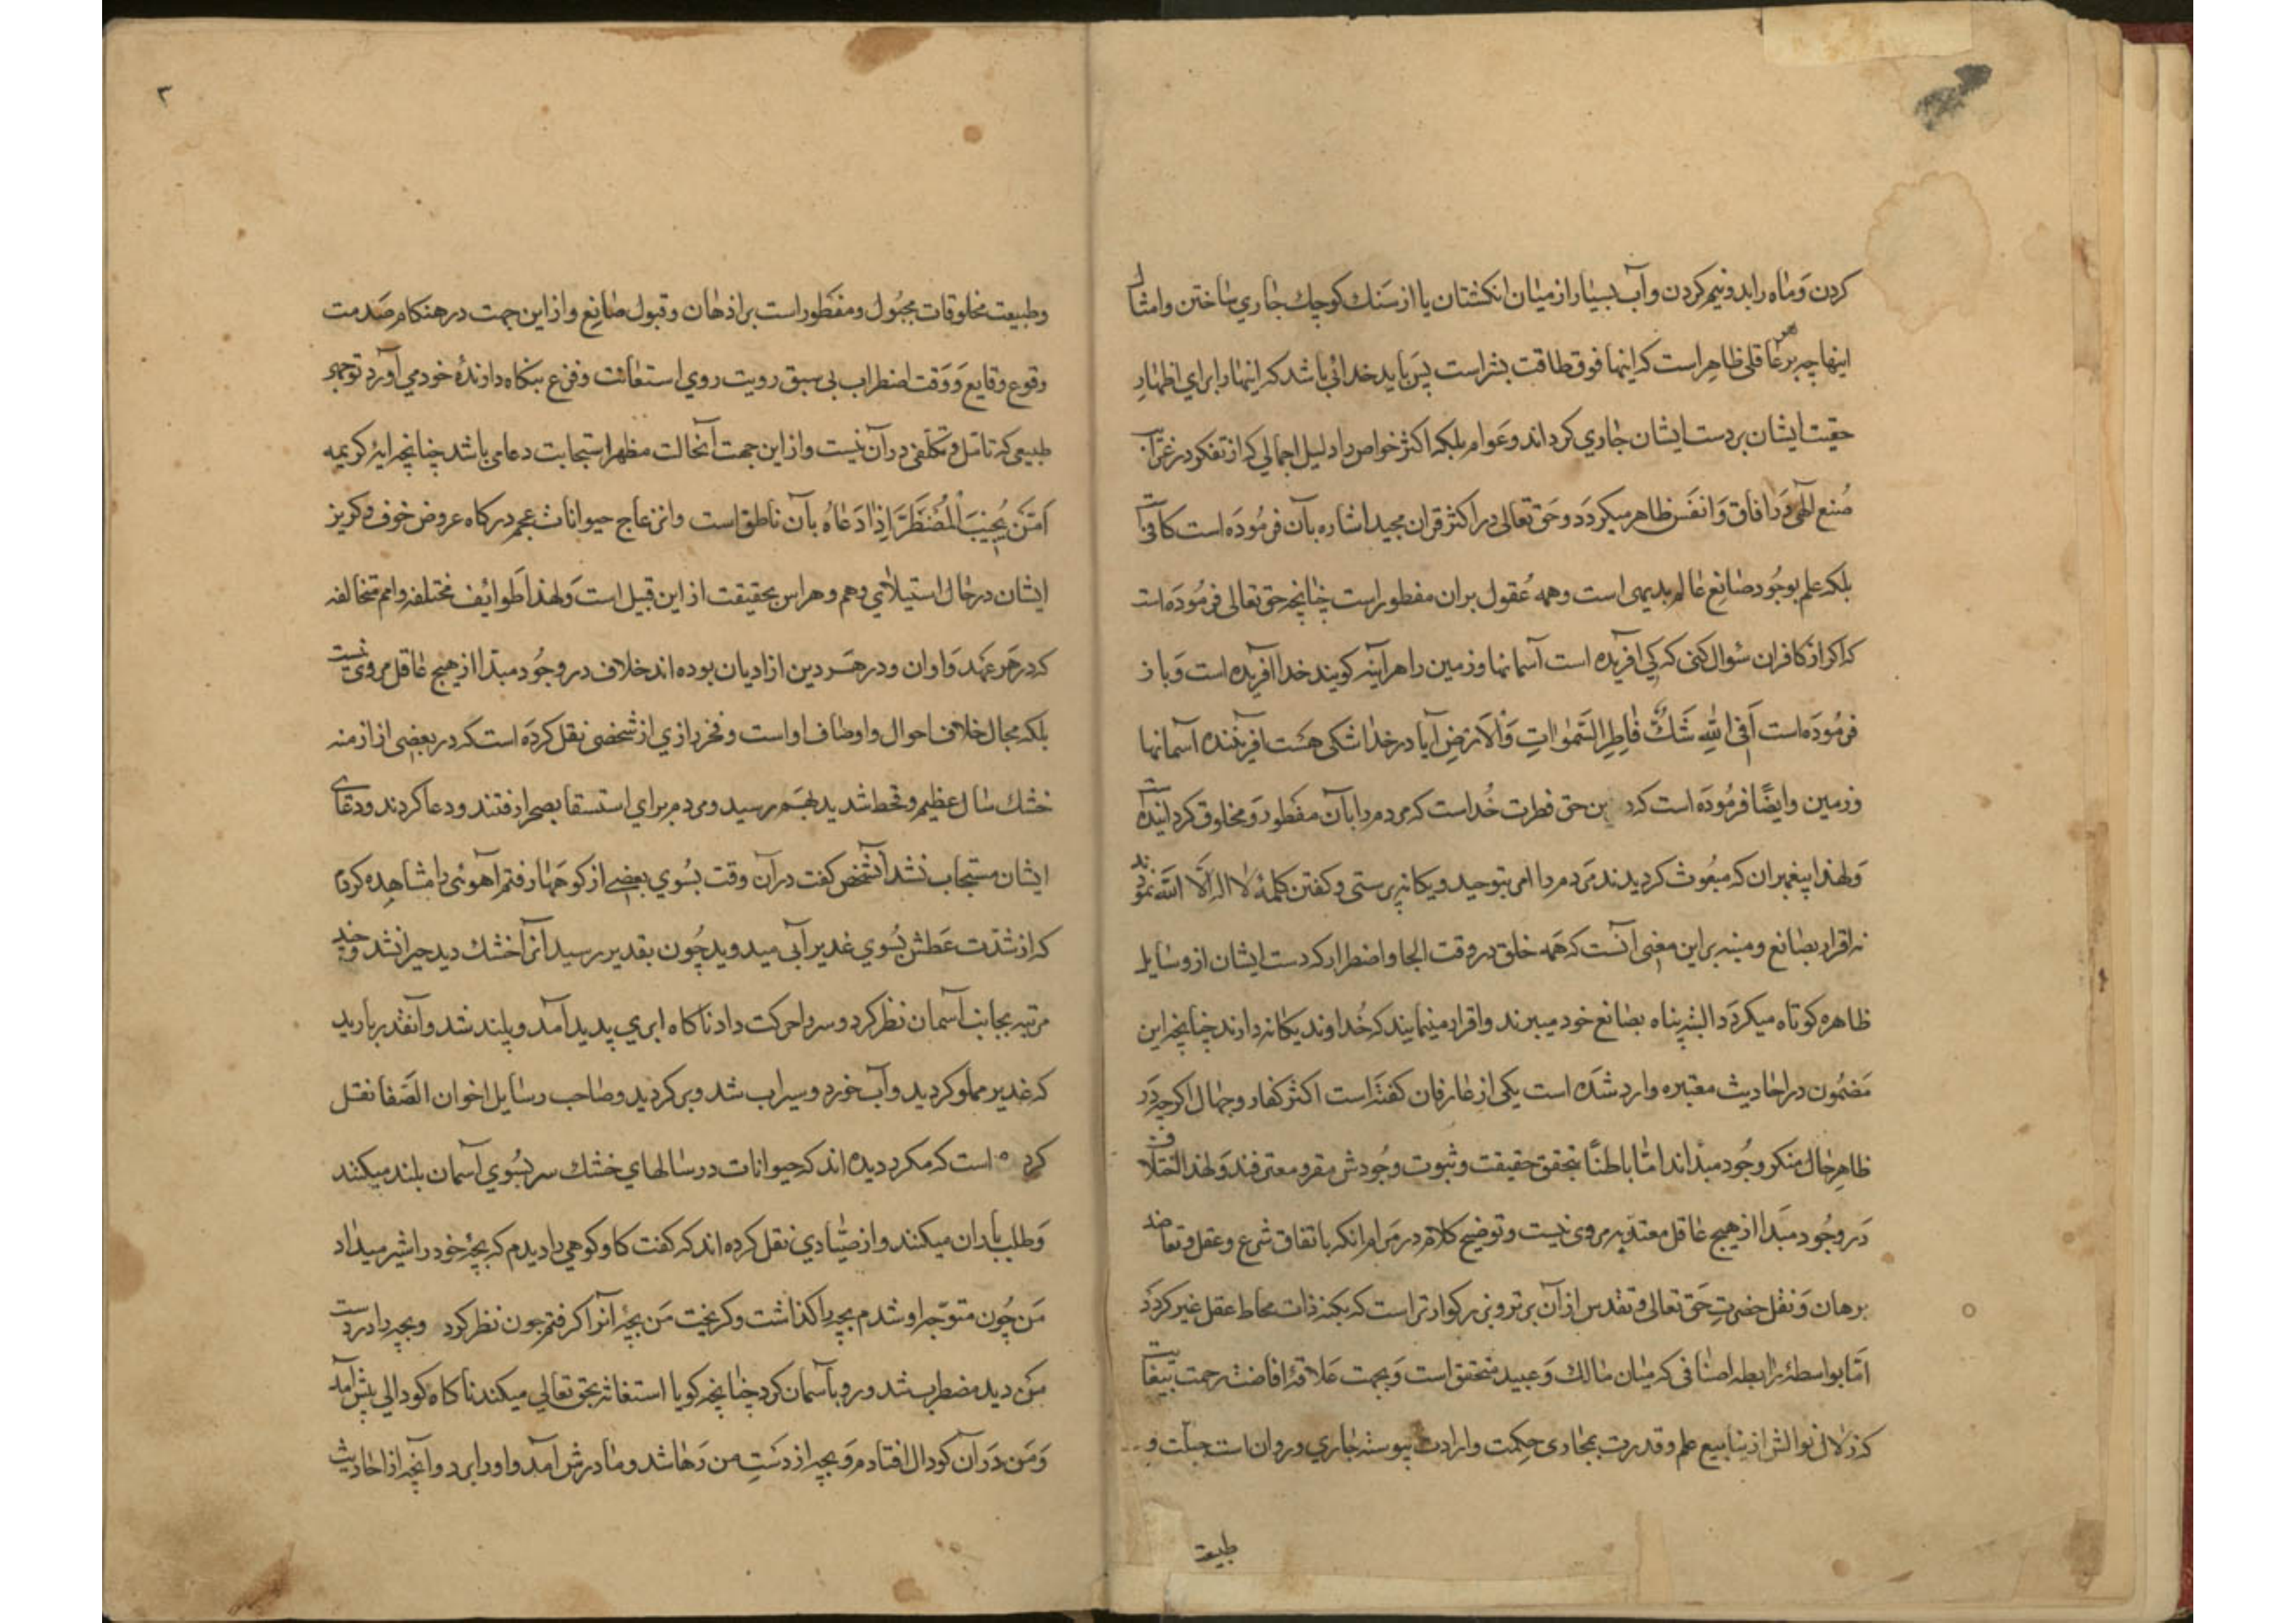 كردن و ماه را بدو نيم كردن و آب بسيار از ميان انكشتان يا از سنك كوچك جاري ساختن و امثال
اينها چه بر هر عاقلي ظاهر است كه اينها فوق طاقت بشر است پس بايد خدائي باشد كه اينها را براي اظهار
حقيت ايشان بر دست ايشان جاري كرداند و عوام بلكه اكثر خواص را دليل اجمالي كه از تفكر در غرآيب
صنع الهي در افاق و انفس ظاهر ميكردد و حق تعالى در اكثر قران مجيد اشاره بآن فرموده است كافيست
بلكه علم بوجود صانع عالم بديهى است و همه عقول بران مفطور است چنانچه حق تعالى فرموده است
كه اكر از كافران سوال كنى كه كي افريده است آسمانها و زمين را هر آينه كويند خدا آفريده است و باز
فرموده است أفي الله شك فاطر السموات والارض آيا در خدا شكى هست افريننده آسمانها
و زمين و ايضا فرموده است كه دين حق فطرت خداست كه مردم را بآن مفطور و مخلوق كردانيده است
و لهذا پيغمبران كه مبعوث كرديدند مردم را امر بتوحيد و يكانه پرستى و كفتن كلمهٔ لا اله الا الله نمودند
نه اقرار بصانع و منبه بر اين معنى آنست كه همه خلق در وقت الجا و اضطرار كه دست ايشان از وسايل
ظاهره كوتاه ميكردد البته پناه بصانع خود ميبرند و اقرار مينمايند كه خداوند يكانه دارند چنانچه اين
مضمون در احاديث معتبره وارد شده است يكى از عارفان كفته است اكثر كفار و جهال اكرچه در
ظاهر حال منكر وجود مبدا اند اما باطنًا بتحقق حقيقت و ثبوت وجودش مقر و معترفند و لهذا اختلاف
در وجود مبدا از هيچ عاقل معتد به مروى نيست و توضيح كلام در مرام انكه باتفاق شرع و عقل و تعاضد
برهان و نقل حضرت حق تعالى و تقدس از آن برتر و بزركوارتر است كه بكنه ذات محاط عقل غير كردد
اما بواسطهٔ رابطه اضافى كه ميان مالك و عبيد متحقق است و بجهت علاقهٔ افاضهٔ رحمت بيغايت
كه زلال نوالش از ينابيع علم و قدرت بمجاري حكمت و ارادت پيوسته جاري و روان است جبلت و
طبيعت
٣
و طبيعت مخلوقات مجبول و مفطور است بر اذهان و قبول صانع و از اين جهت در هنكام صدمت
وقوع وقايع و وقت اضطراب بى سبق رويت روي استعانت و فزع بپناه دارندهٔ خود مي آورد توجهى
طبيعى كه تامل و تكلفى در آن نيست و از اين جهت آنحالت مظهر استجابت دعا مى باشد چنانچه ايهٔ كريمه
امن يجيب المضطر اذا دعاه بآن ناطق است و انزعاج حيوانات عجم در كاه عروض خوف و كريز
ايشان در حال استيلاي وهم و هراس بحقيقت از اين قبيل است و لهذا طوايف مختلفه و امم متخالفه
كه در هر عهد و اوان و در هر دين از اديان بوده اند خلاف در وجود مبتدا از هيچ عاقل مروى نيست
بلكه مجال خلاف احوال و اوصاف او است و فخر رازي از شخصى نقل كرده است كه در بعضى از ازمنه
خشك سال عظيم و قحط شديد بهم رسيد و مردم براي استسقا بصحرا رفتند و دعا كردند و دعاى
ايشان مستجاب نشد آنشخص كفت در آن وقت بسوي بعضى از كوهها رفتم آهوئى را مشاهده كردم
كه از شدت عطش بسوي غدير آبى ميدويد چون بغدير رسيد آنرا خشك ديد حيران شد و چند
مرتبه بجانب آسمان نظر كرد و سر را حركت داد ناكاه ابري پديد آمد و بلند شد و آنقدر باريد
كه غدير مملو كرديد و آب خورد و سيراب شد و بركرديد و صاحب رسايل اخوان الصفا نقل
كرده است كه مكرر ديده اند كه حيوانات در سالهاي خشك سر بسوي آسمان بلند ميكنند
و طلب باران ميكنند و از صيادي نقل كرده اند كه كفت كاو كوهي را ديدم كه بچهٔ خود را شير ميداد
من چون متوجه او شدم بچه را كذاشت و كريخت من بچهٔ آنرا كرفتم چون نظر كرد و بچه را در دست
من ديد مضطرب شد و رو بآسمان كرد چنانچه كويا استغاثه بحق تعالي ميكند ناكاه كودالي پيش آمد
و من در آن كودال افتادم و بچه از دست من رها شد و مادرش آمد و او را برد و آنچه از احاديث